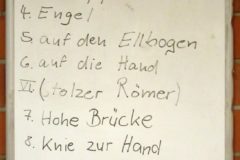 4. Engel
5. auf den Ellbogen
6. auf die Hand
VI (stolzer Römer)
7. Hohe Brücke
8. Knie zur Hand